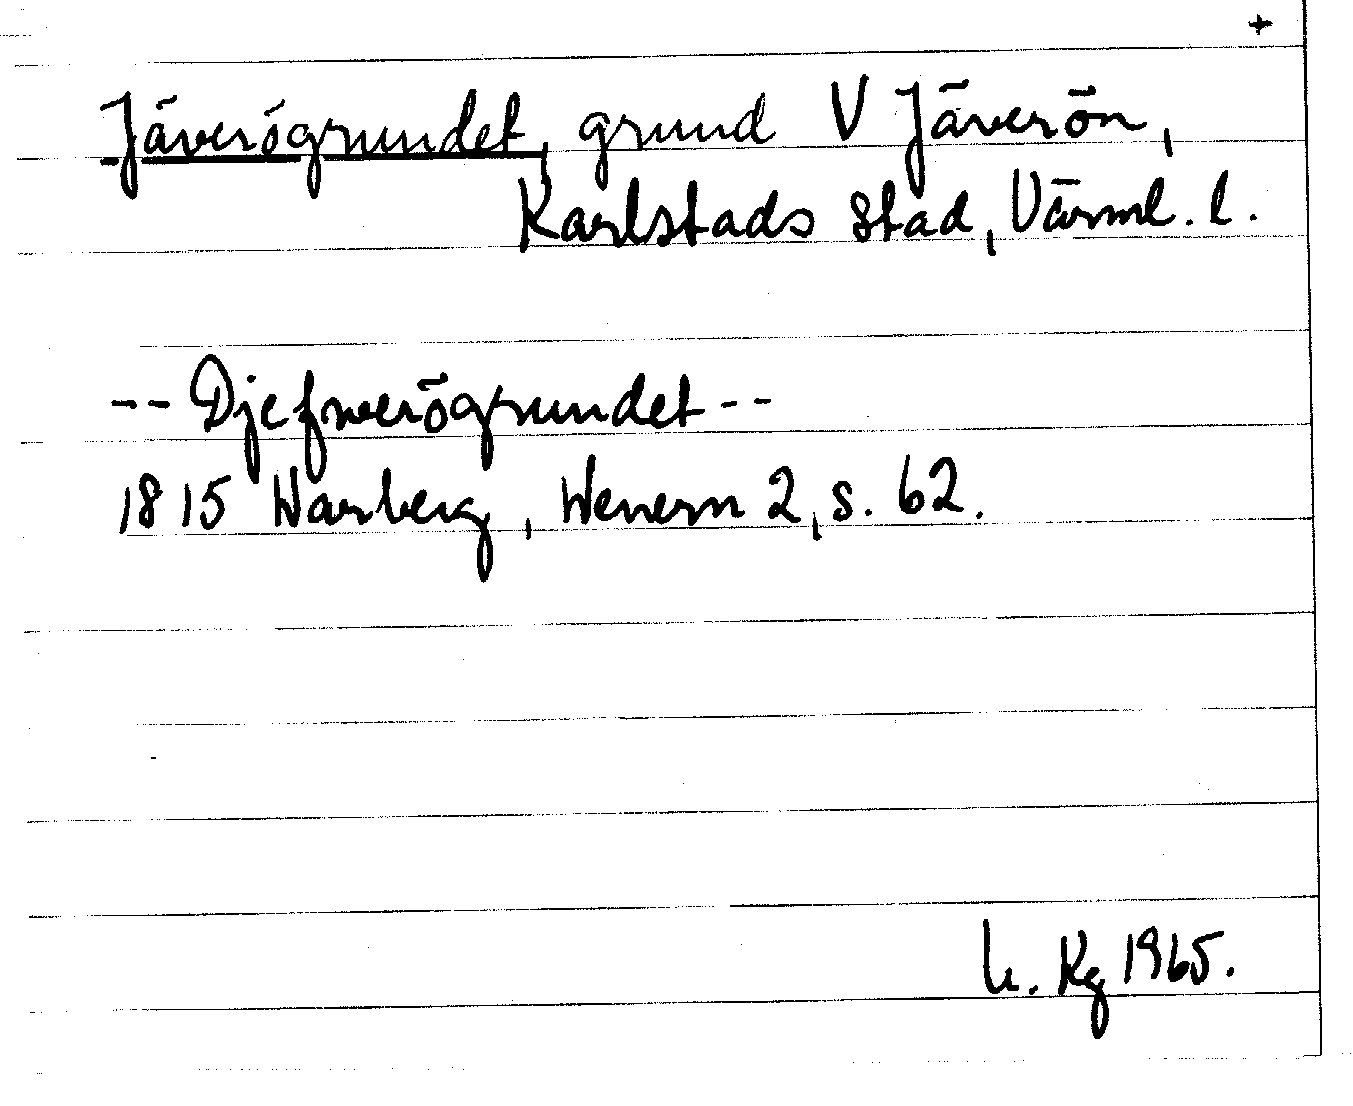 +
Jäverögrundet, grund V Jäverön,
Karlstads stad, Värml. l.
-- Djefverögrundet --
1815 Warberg, Wenern 2, s. 62.
U. Kg 1965.